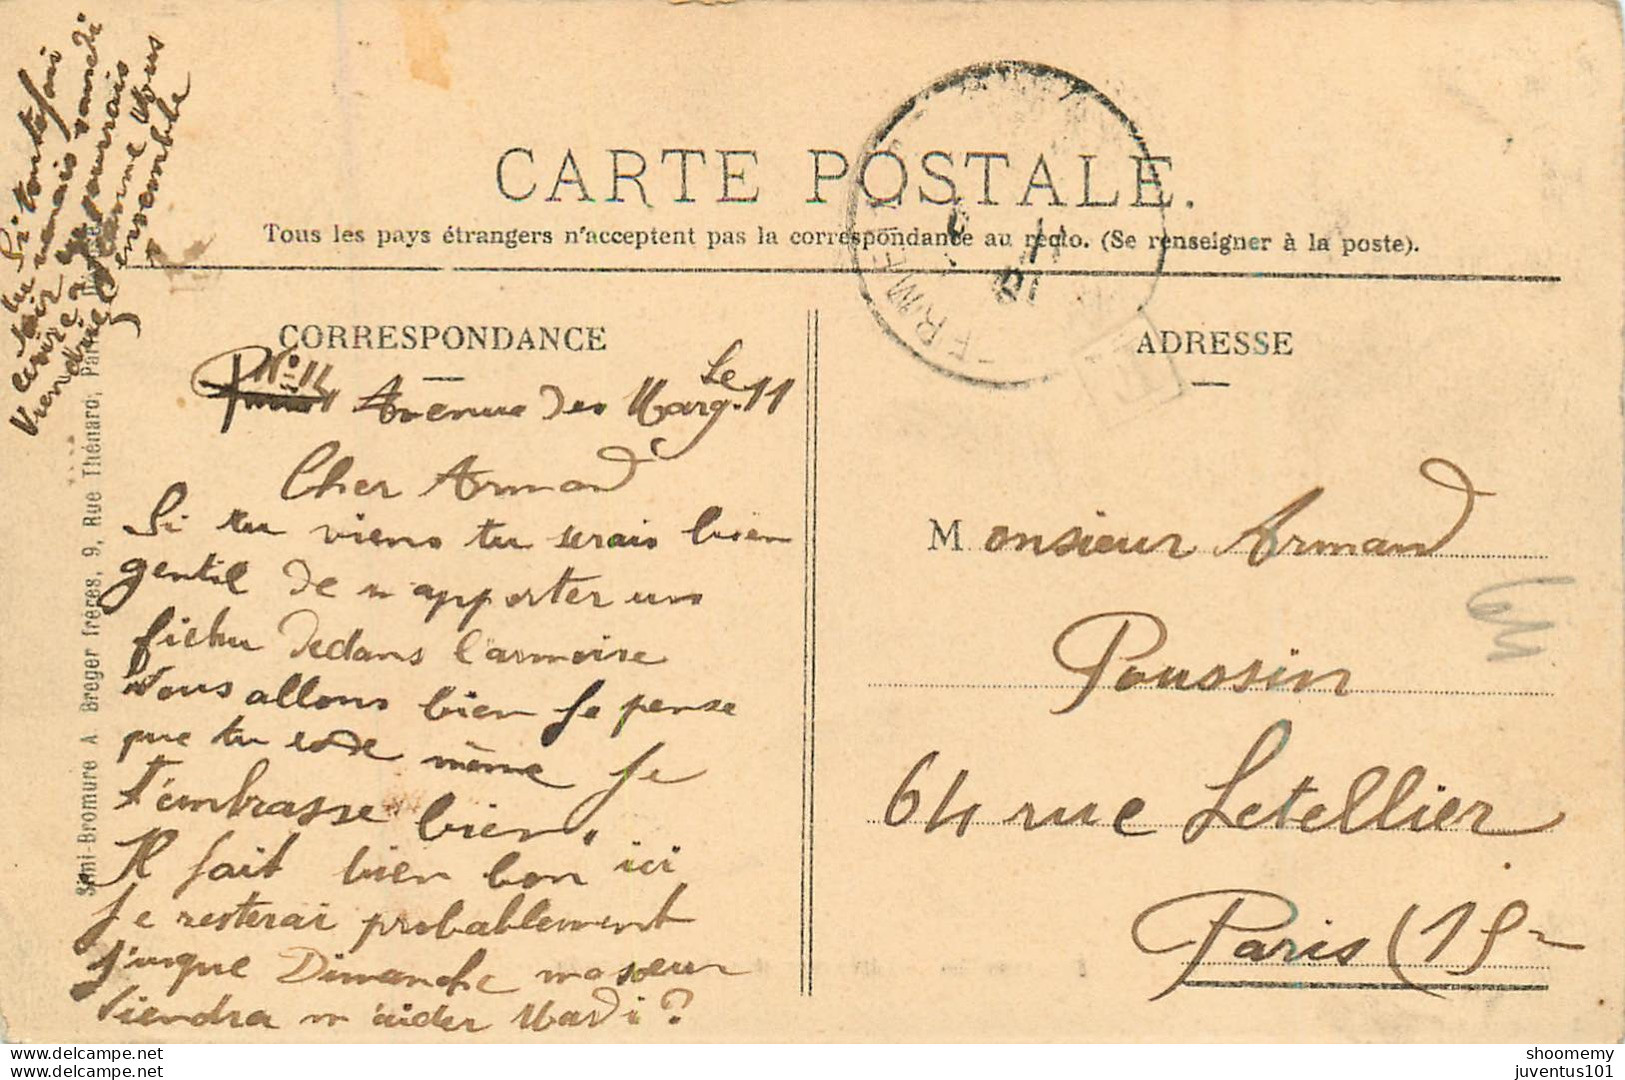 CARTE POSTALE.
Tous les pays étrangers n'acceptent pas la correspondance au recto. (Se renseigner à la poste).
CORRESPONDANCE
ADRESSE
Si toutefois
tu venais samedi
soir tu pourrais
écrire à
Viendrie ensemble
No 14 Avenue des Marg. Le 11
Cher Armand
Si tu viens tu serais bien
gentil de m apporter un
fichu dedans l'armoire
Nous allons bien Je pense
que tu est de même Je
t'embrasse bien.
Il fait bien bon ici
Je resterai probablement
j'usque Dimanche ma soeur
viendra m'aider Mardi?
Monsieur Armand
Poussin
64 rue Letellier
Paris (15
Semi-Bromure A Breger frères, 9, Rue Thénard, Paris
shoomemy
juventus101